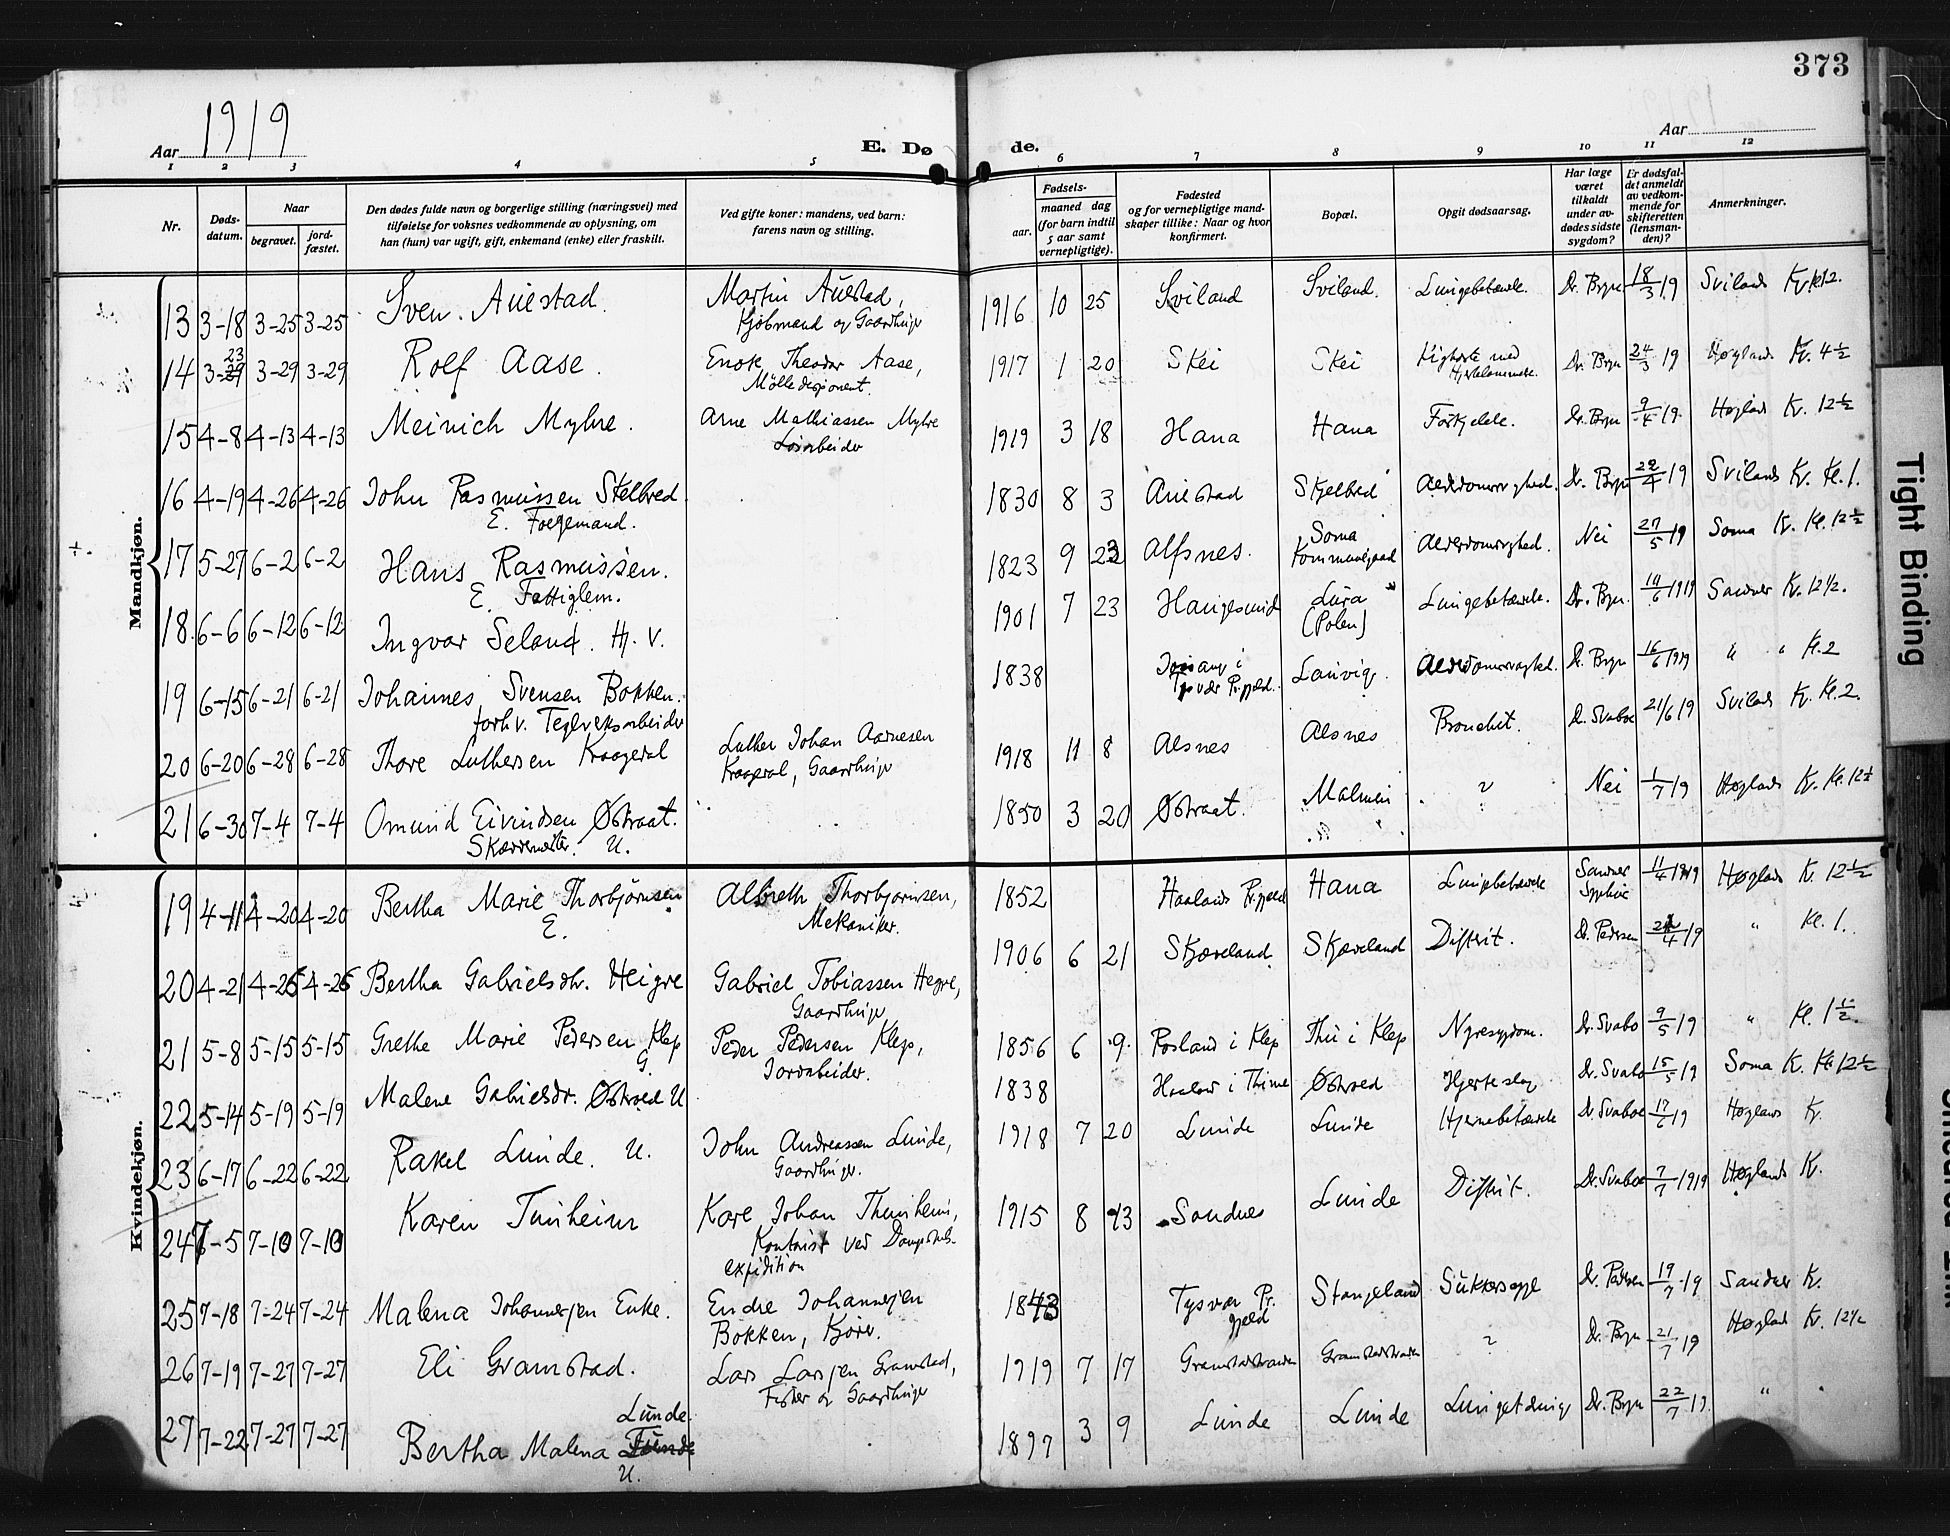 373
Aar 1919
Aar
E. Dø de.
1 2 3 4 5 6 7 8 9 10 11 12
Nr.
Døds-
datum.
Naar
begravet.
jord-
fæstet.
Den dødes fulde navn og borgerlige stilling (næringsvei) med
tilføielse for voksnes vedkommende av oplysning, om
han (hun) var ugift, gift, enkemand (enke) eller fraskilt.
Ved gifte koner: mandens, ved barn:
farens navn og stilling.
Fødsels-
aar.
maaned dag
(for barn indtil
5 aar samt
vernepligtige).
Fødested
og for vernepligtige mand-
skaper tillike: Naar og hvor
konfirmert.
Bopæl.
Opgit dødsaarsag.
Har læge
været
tilkaldt
under av-
dødes sidste
sygdom?
Er dødsfal-
det anmeldt
av vedkom-
mende for
skifteretten
(lensman-
den)?
Anmerkninger.
Mandkjøn.
13 3-18 3-25 3-25 Sven Auestad. Martin Auestad, 1916 10 25 Sviland Sviland. Lungebetænde. Dr. Bryn 18/3 19 Svilands Kr. kl 12.
Kjøbmand og Gaardbruger
14 3-23 3-29 3-29 Rolf Aase. Enok Theodor Aase, 1917 1 20 Skei Skei Kighoste med Dr. Bryn 24/3 19 Høylands Kr. 4½
Mølledisponent.
15 4-8 4-13 4-13 Meinich Myhre. Arne Mathiassen Myhre 1919 3 18 Hana Hana Forkjølelse. Dr. Bryn 9/4 19. Høylands Kr. 12½
Løsarbeider
16 4-19 4-26 4-26 John Rasmussen Skelbred 1830 8 3 Auestad Skjelbred Alderdomssvaghed. Dr. Bryn 22/4 19 Svilands Kr. Kl. 1.
E. Foegemand.
17 5-27 6-2 6-2 Hans Rasmussen. 1823 9 23 Alfsnes. Soma Alderdomssvaghed. Nei 27/5 19 Soma Kr. Kl. 12½
Kommunegaard
E. Fattiglem.
18. 6-6 6-12 6-12 Ingvar Seland. Hj. V. 1901 7 23 Haugesund Lura Lungebetænde. Dr. Bryn. 10/6 1919 Sandnes Kr. 12½.
(Polen)
19 6-15 6-21 6-21 Johannes Svensen Bokken. 1838 Tysvær Pr.gjeld. Lauvig. Alderdomssvaghed. Dr. Bryn 16/6 1919 " " Kl. 2
forhv. Teglverksarbeider
20 6-20 6-28 6-28 Thore Luthersen Kraagedal Luther Johan Aarnesen 1918 11 8 Alsnes Alsnes Bronchit. Dr. Svaboe 21/6 19 Svilands Kr. Kl. 2.
Kraagedal, Gaardbruger
21 6-30 7-4 7-4 Omund Eivindsen Østraat. 1850 3 20 Østraat. Malmen ? Nei 1/7 19 Høylands Kr. Kl. 12½
Skræddermester. U.
Kvindekjøn.
19 4-11 4-20 4-20 Bertha Marie Thorbjørnsen Albreth Thorbjørnsen, 1852 Haalands Pr.gjeld Hana Lungebetænde Sandnes 11/4 1919 Høylands Kr. 12½
E. Mekaniker.
20 4-21 4-26 4-26 Bertha Gabrielsdtr. Heigre Gabriel Tobiassen Hegre, 1906 6 21 Skjæveland. Skjæveland Difterit. Dr. Pedersen 22/4 19 " Kl. 1.
Gaardbruger
21 5-8 5-15 5-15 Grethe Marie Pedersen Klep Peder Pedersen Klep, 1856 6 9. Rosland i Klep Thu i Klep Nyresygdom. Dr. Svabo 9/5 19 " Kl. 1½.
G. Jordarbeider.
22 5-14 5-19 5-19 Malene Gabrielsdtr. Østraad U 1838 Haaland i Thime Østraad Hjerteslag Dr. Svabo 15/5 19 Soma K. Kl. 12½
23 6-17 6-22 6-22 Rakel Lunde. U. John Andreassen Lunde, 1918 7 20 Lunde Lunde Hjernebetænde Dr. Svaboe 17/6 19 Høylands Kr.
Gaardbruger.
24 7-5 7-10 7-10 Karen Tunheim Kare Johan Thunheim, 1915 8 13 Sandnes Lunde Difterit. Dr. Svaboe 7/7 1919 Høylands Kr.
Kontorist ved Dampskibs-
expidition
25 7-18 7-24 7-24 Malena Johannesjen Enke. Endre Johannesjen 1843 Tysvær Pr. Stangeland Sukkersyge Dr. Pedersen 19/7 19 Sandnes Kr.
gjeld
Bokken, Kjører.
26 7-19 7-27 7-27 Eli Gramstad. Lars Larsjen Gramstad, 1919 7 17 Gramstadstranden Gramstadstranden ? Dr. Bryn 21/7 19 Høylands Kr. 12½
Fisker og Gaardbruger
27 7-22 7-27 7-27 Bertha Malena Lunde 1897 3 9 Lunde Lunde Dr. Bryn 22/7 19. "
U.
Tight Binding